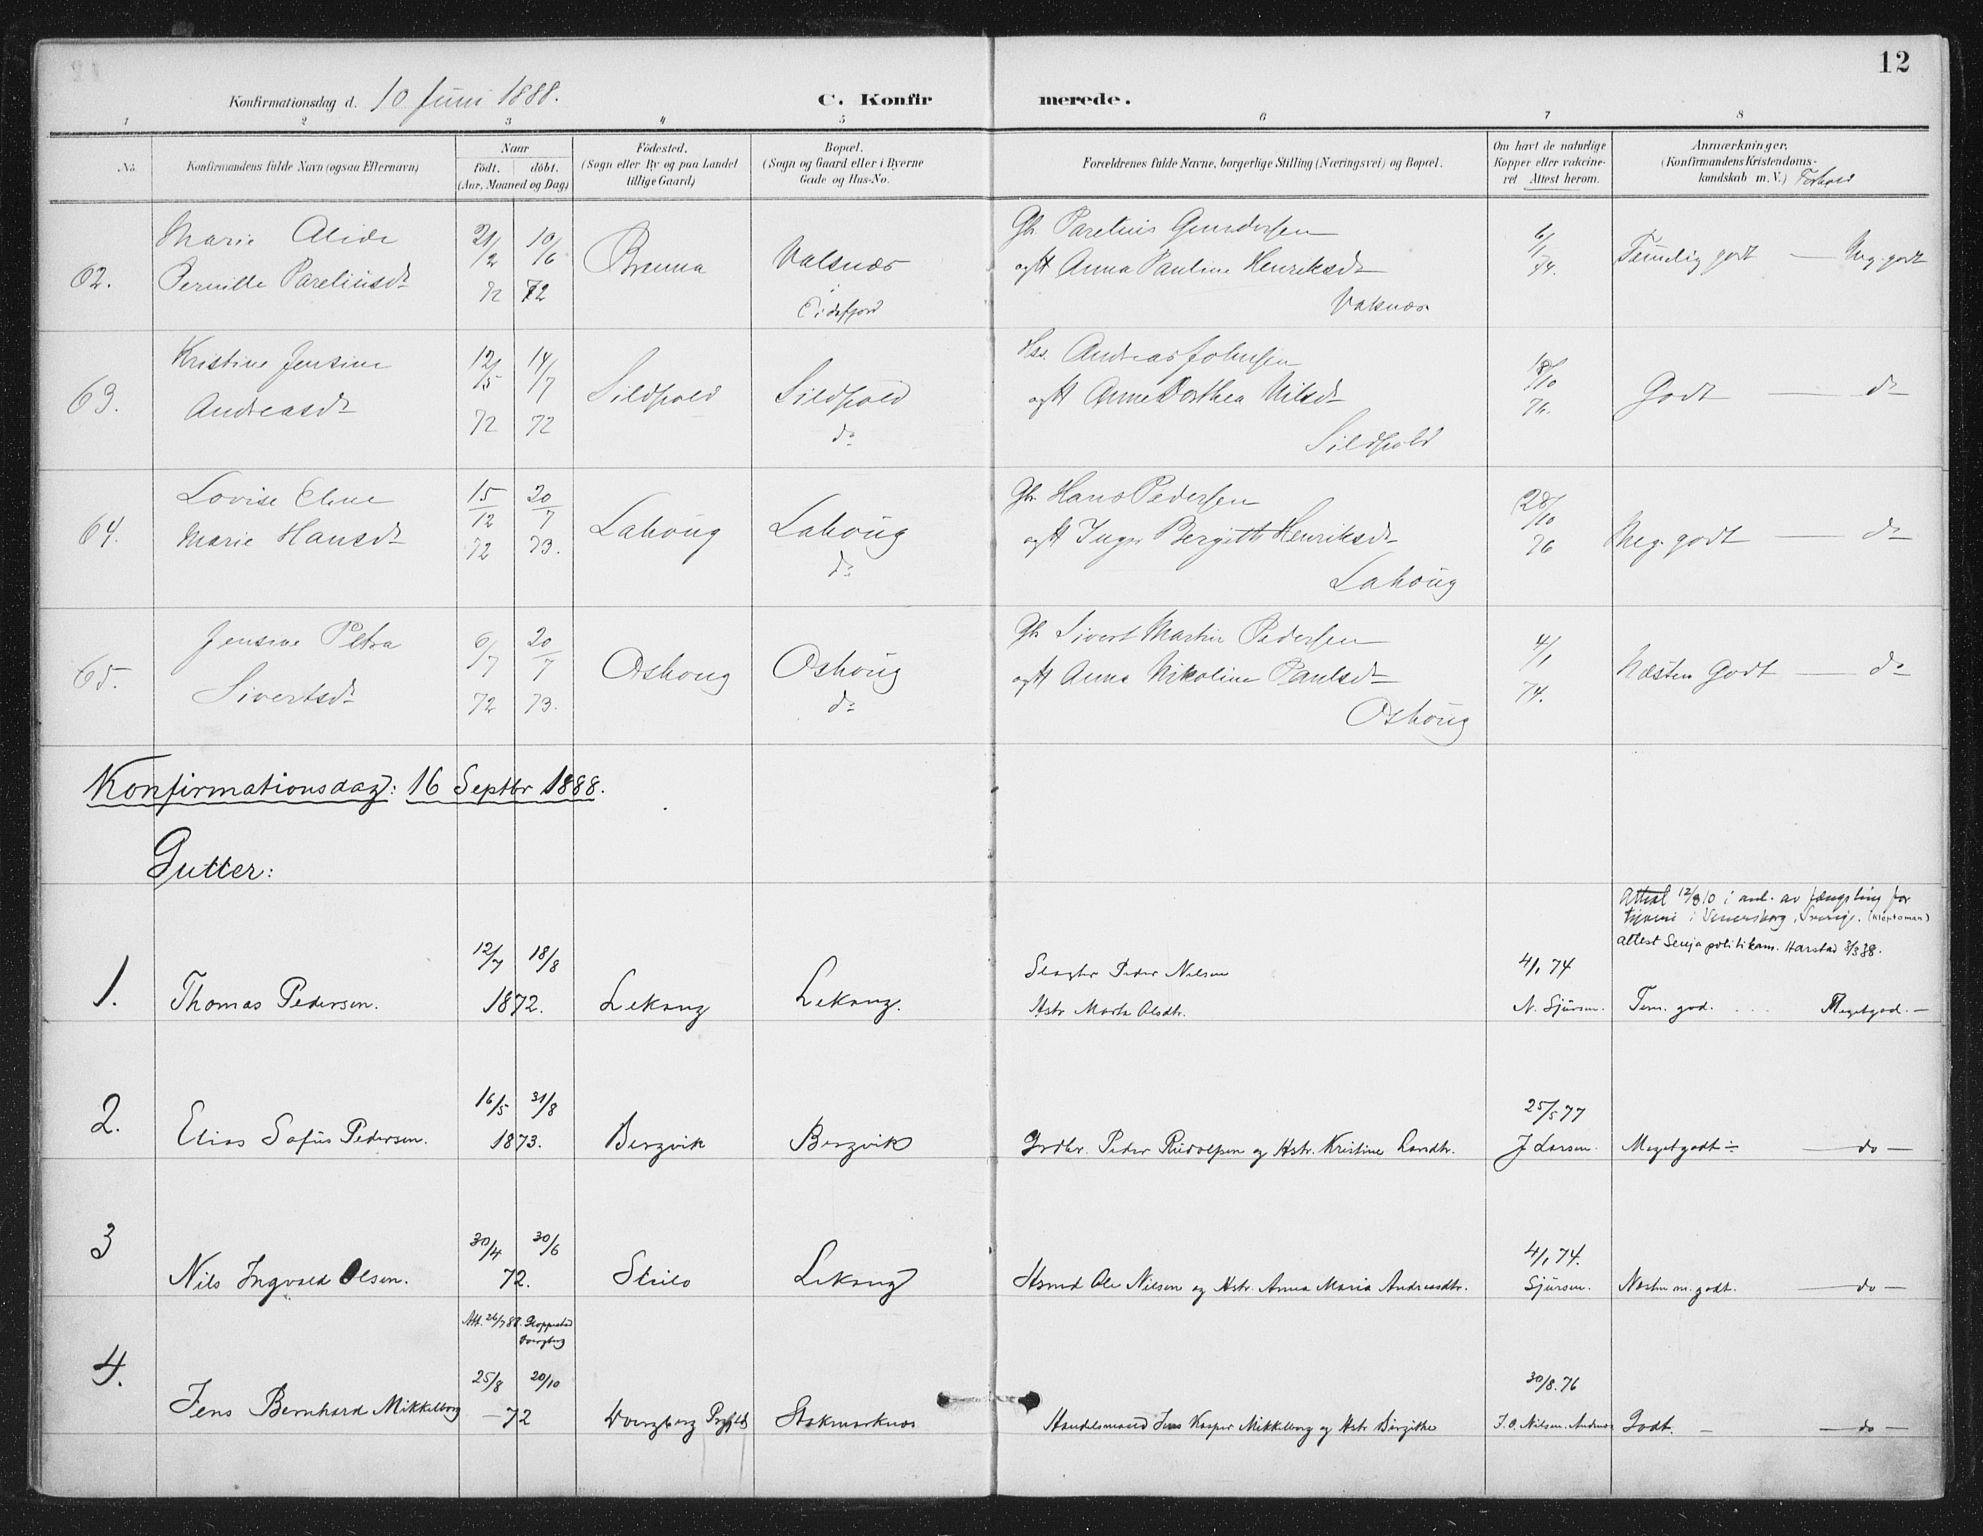 12
Konfirmationsdag d. 10 Juni 1888.
C. Konfirmerede.
1 2 3 4 5 6 7 8
No.
Konfirmandens fulde Navn (ogsaa Efternavn)
Naar
født. døbt.
(Aar, Maaned og Dag)
Fødested.
(Sogn eller By og paa Landet
tillige Gaard)
Bopæl.
(Sogn og Gaard eller i Byerne
Gade og Hus-No.
Forældrenes fulde Navne, borgerlige Stilling (Næringsvei) og Bopæl.
Om havt de naturlige
Kopper eller vakcine-
ret Attest herom.
Anmærkninger.
(Konfirmandens Kristendoms-
kundskab m. V.) Forhold
Marie Alide 21/2 10/6
62. Pernille Pareliusdr 72 72 Brenna Valsnæs
i Eidsfjord
Gbr Parelius Gundersen
og H Anna Pauline Henriksdr
Valsnæs
6/1 74. Temelig godt — Meg. godt
Kristine Jensine 12/5 14/7
63. Andreasdr 72 72 Sildpold Sildpold
do
Hss. Andreas Johnsen
og H Anne Dorthea Nilsdr
Sildpold
18/10 76. Godt — do
Lovise Eline 15/12 20/7
64. Marie Hansdr 72 73. Lahaug Lahaug
do
Gbr Hans Pedersen
og H Inger Bergitte Henriksdr
Lahaug
28/10 76 Meg. godt — do
Jensine Petra 6/7 20/7
65. Sivertsdr 72 73. Oshaug Oshaug
do
Gbr Sivert Martin Pedersen
og H Anna Nikoline Paulsdr
Oshaug
4/1 74. Næsten Godt — do
Konfirmationsdag: 16 Septbr 1888.
Gutter:
Attest 12/8 10 i anl. av fængsling for
tyveri i Venersborg, Sverige. (Kleptoman)
attest Senja politikam. Harstad 3/3 38.
12/7 18/8
1. Thomas Pedersen. 1872. Lekang Lekang.
Slagter Peder Nilsen
Hstr Marta Olsdtr.
4/1 74
N. Sjursen. Tem. god. ... Meget god. —
16/5 31/8
2. Elias Sofus Pedersen. 1873. Bergvik Bergvik
Grdbr. Peder Rudolfsen og Hstr. Kristine Larsdtr.
25/5 77
J Larsen. Meget godt — do —
30/4 30/6
3 Nils Ingvald Olsen. 72. Strilo Lekang
Hsmd Ole Nilsen og Hstr. Anna Maria Andreasdtr.
4/1 74.
Sjursen. Næsten m. godt. — do —
Att. 26/7 88. Kloppestad
Dverberg
25/8 20/10
4. Jens Bernhard Mikkelborg — 72 Dverberg Prgjld Stokmarknæs
Handelsmand Jens Kasper Mikkelborg og Hstr Birgithe
30/8. 76
J. O. Nilsen. Andenæs Godt. — — do —